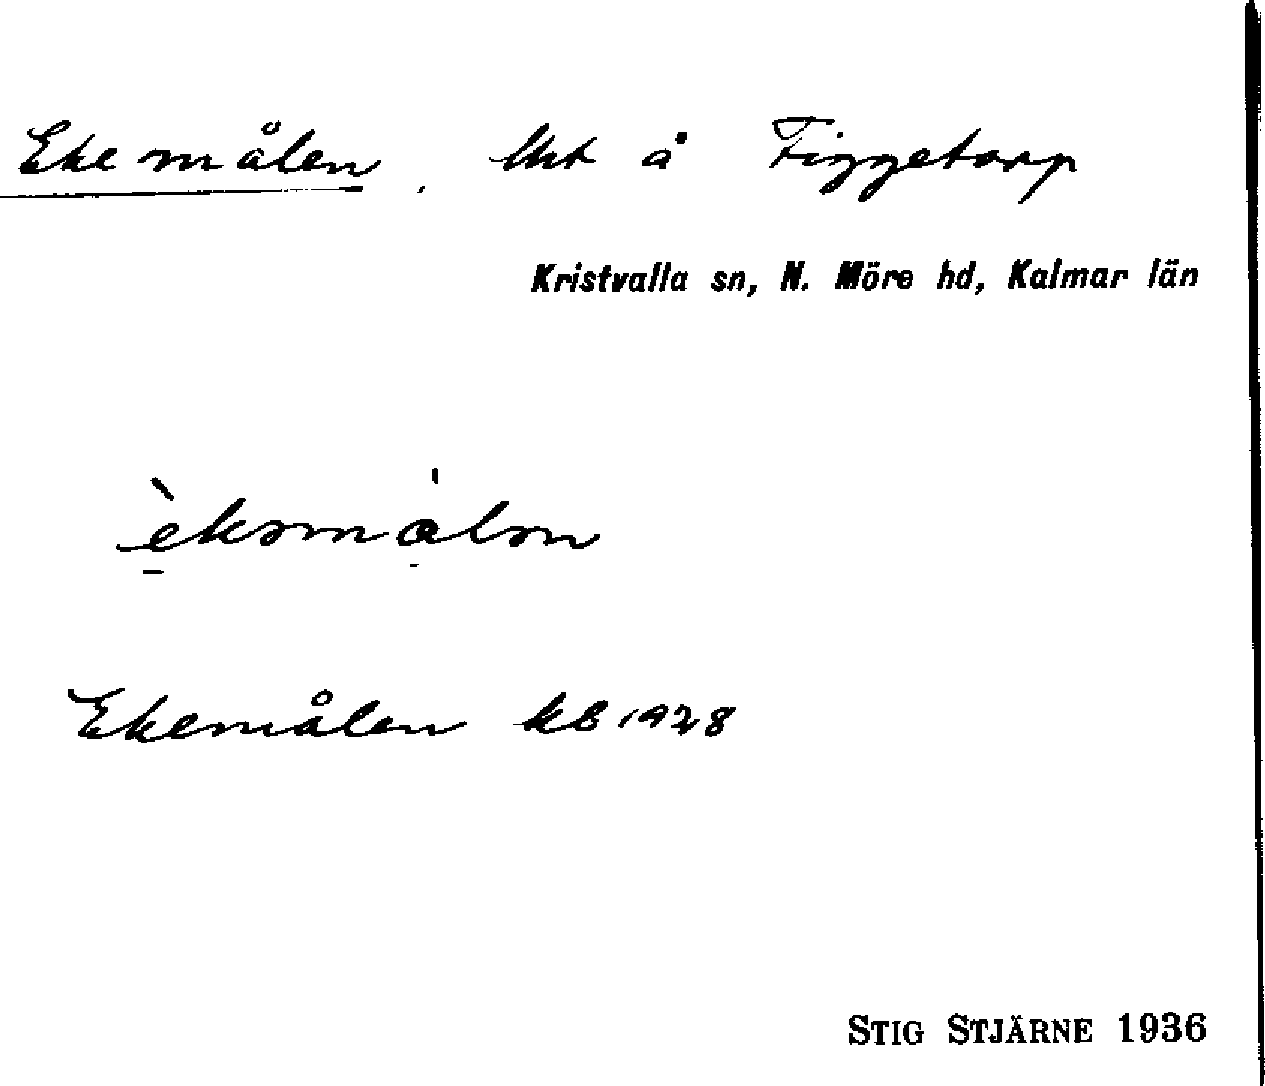 Ekemålen, lht å Figgetorp
Kristvalla sn, N. Möre hd, Kalmar län
èkəmålən
Ekemålen kb 1928
STIG STJÄRNE 1936